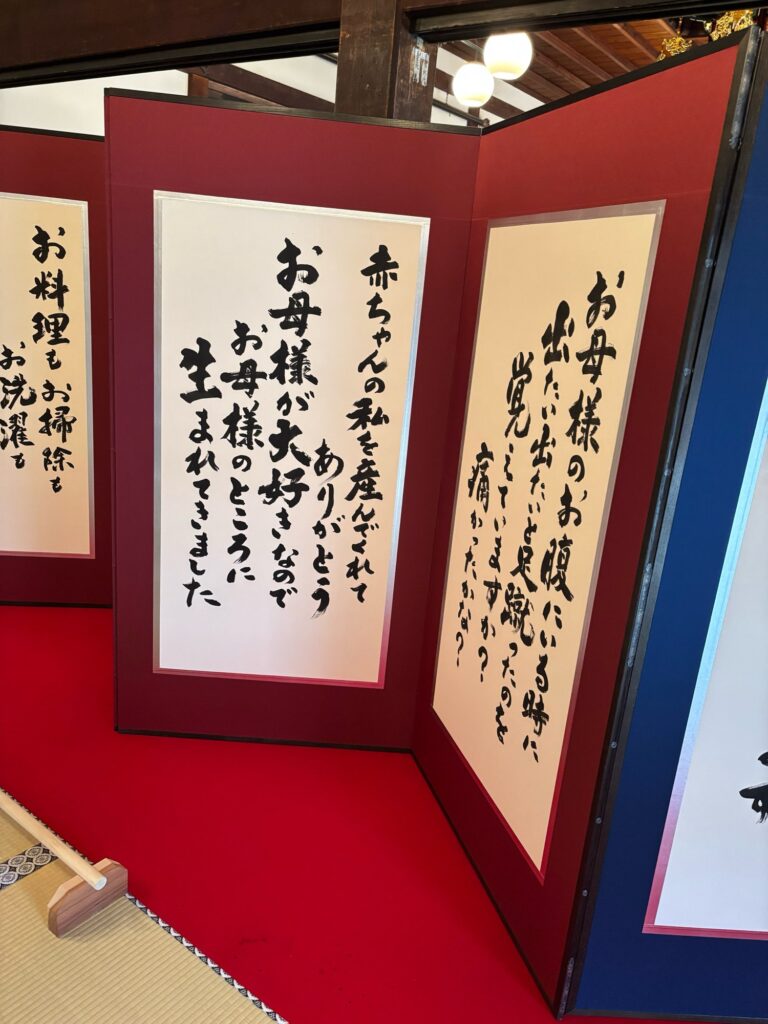 お母様のお腹にいる時に
出たい出たいと足蹴ったのを
覚えていますか？
痛かったかな？
赤ちゃんの私を産んでくれて
ありがとう
お母様が大好きなので
お母様のところに
生まれてきました
お料理もお掃除も
お洗濯も